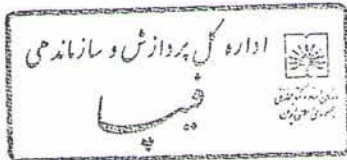 اداره کل پردازش و سازماندهی
فیپا
سازمان اسناد و کتابخانه ملی
جمهوری اسلامی ایران